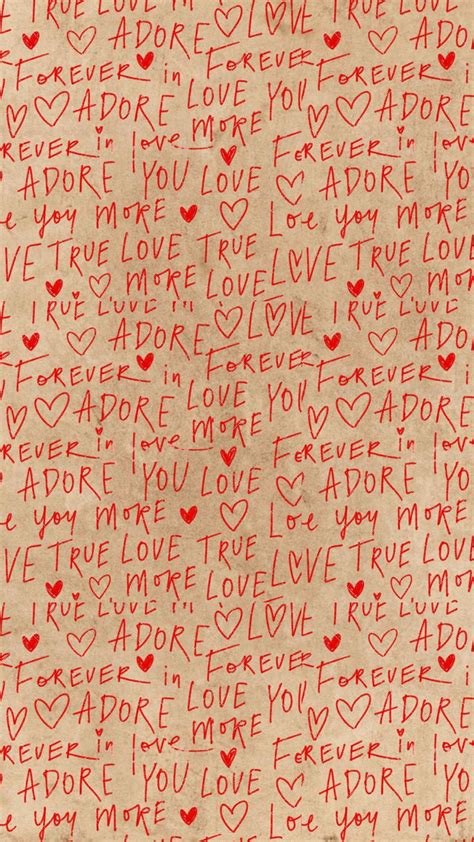 TRUE LOVE
ADORE
FOREVER in FOREVER
ADORE LOVE YOU
REVER in love MORE FOREVER in love
ADORE YOU LOVE ADORE
e you MORE Loe you MORE
VE TRUE LOVE TRUE LOVE TRUE LOVE
MORE LOVE MORE
TRUE LOVE TRUE LOVE
ADORE LOVE ADORE
FOREVER in FOREVER
ADORE LOVE YOU ADORE
REVER in love MORE FOREVER in love
ADORE YOU LOVE ADORE
e you MORE Loe you MORE
VE TRUE LOVE TRUE LOVE TRUE LOVE
MORE LOVE MORE
TRUE LOVE TRUE LOVE
ADORE LOVE ADORE
FOREVER in FOREVER
ADORE LOVE YOU ADORE
REVER in love MORE FOREVER in love
ADORE YOU LOVE ADORE
e you MORE Loe you MORE